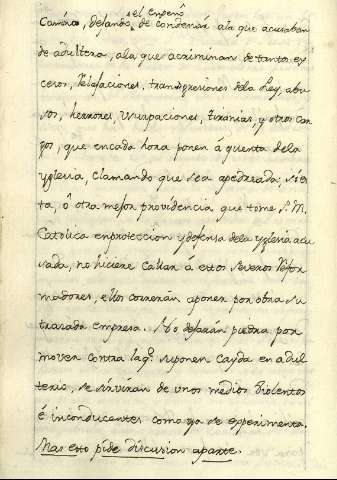 el empeño
Camino, dejando de condenar ala que acusaban
de adultera, ala que acriminan de tantos ex
cesos, relajaciones, transgresiones dela Ley, abu
sos, herrores, Usurpaciones, tiranias, y otros car
gos, que encada hora ponen á quenta dela
yglesia, clamando que sea apedreada; si es
ta, ô otra mejor providencia que tome S. M.
Catolica enproteccion ydefensa dela yglesia acu
sada, no hiciere callar á estos severos refor
madores, ellos correrán aponer por obra su
trasada empresa. No dejarán piedra por
mover contra laq.e suponen cayda en adul
terio, se servirán de unos medios violentos
é inconducentes como ya se experimenta.
Mas esto pide discusion aparte.